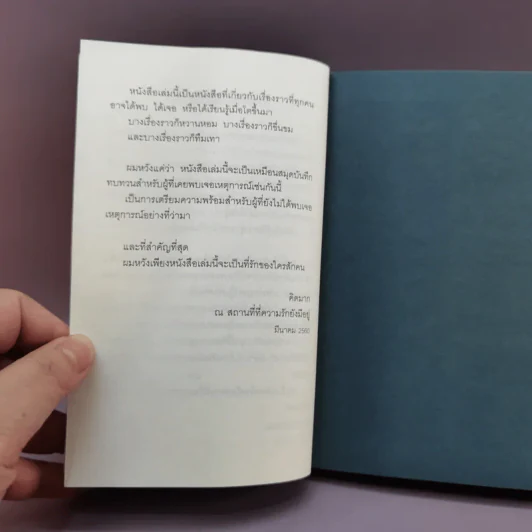 หนังสือเล่มนี้เป็นหนังสือที่เกี่ยวกับเรื่องราวที่ทุกคน
อาจได้พบ ได้เจอ หรือได้เรียนรู้เมื่อโตขึ้นมา
บางเรื่องราวก็หวานหอม บางเรื่องราวก็ขื่นขม
และบางเรื่องราวก็ทึมเทา
ผมหวังแค่ว่า หนังสือเล่มนี้จะเป็นเหมือนสมุดบันทึก
ทบทวนสำหรับผู้ที่เคยพบเจอเหตุการณ์เช่นกันนี้
เป็นการเตรียมความพร้อมสำหรับผู้ที่ยังไม่ได้พบเจอ
เหตุการณ์อย่างที่ว่ามา
และที่สำคัญที่สุด
ผมหวังเพียงหนังสือเล่มนี้จะเป็นที่รักของใครสักคน
คิดมาก
ณ สถานที่ที่ความรักยังมีอยู่
มีนาคม 2560